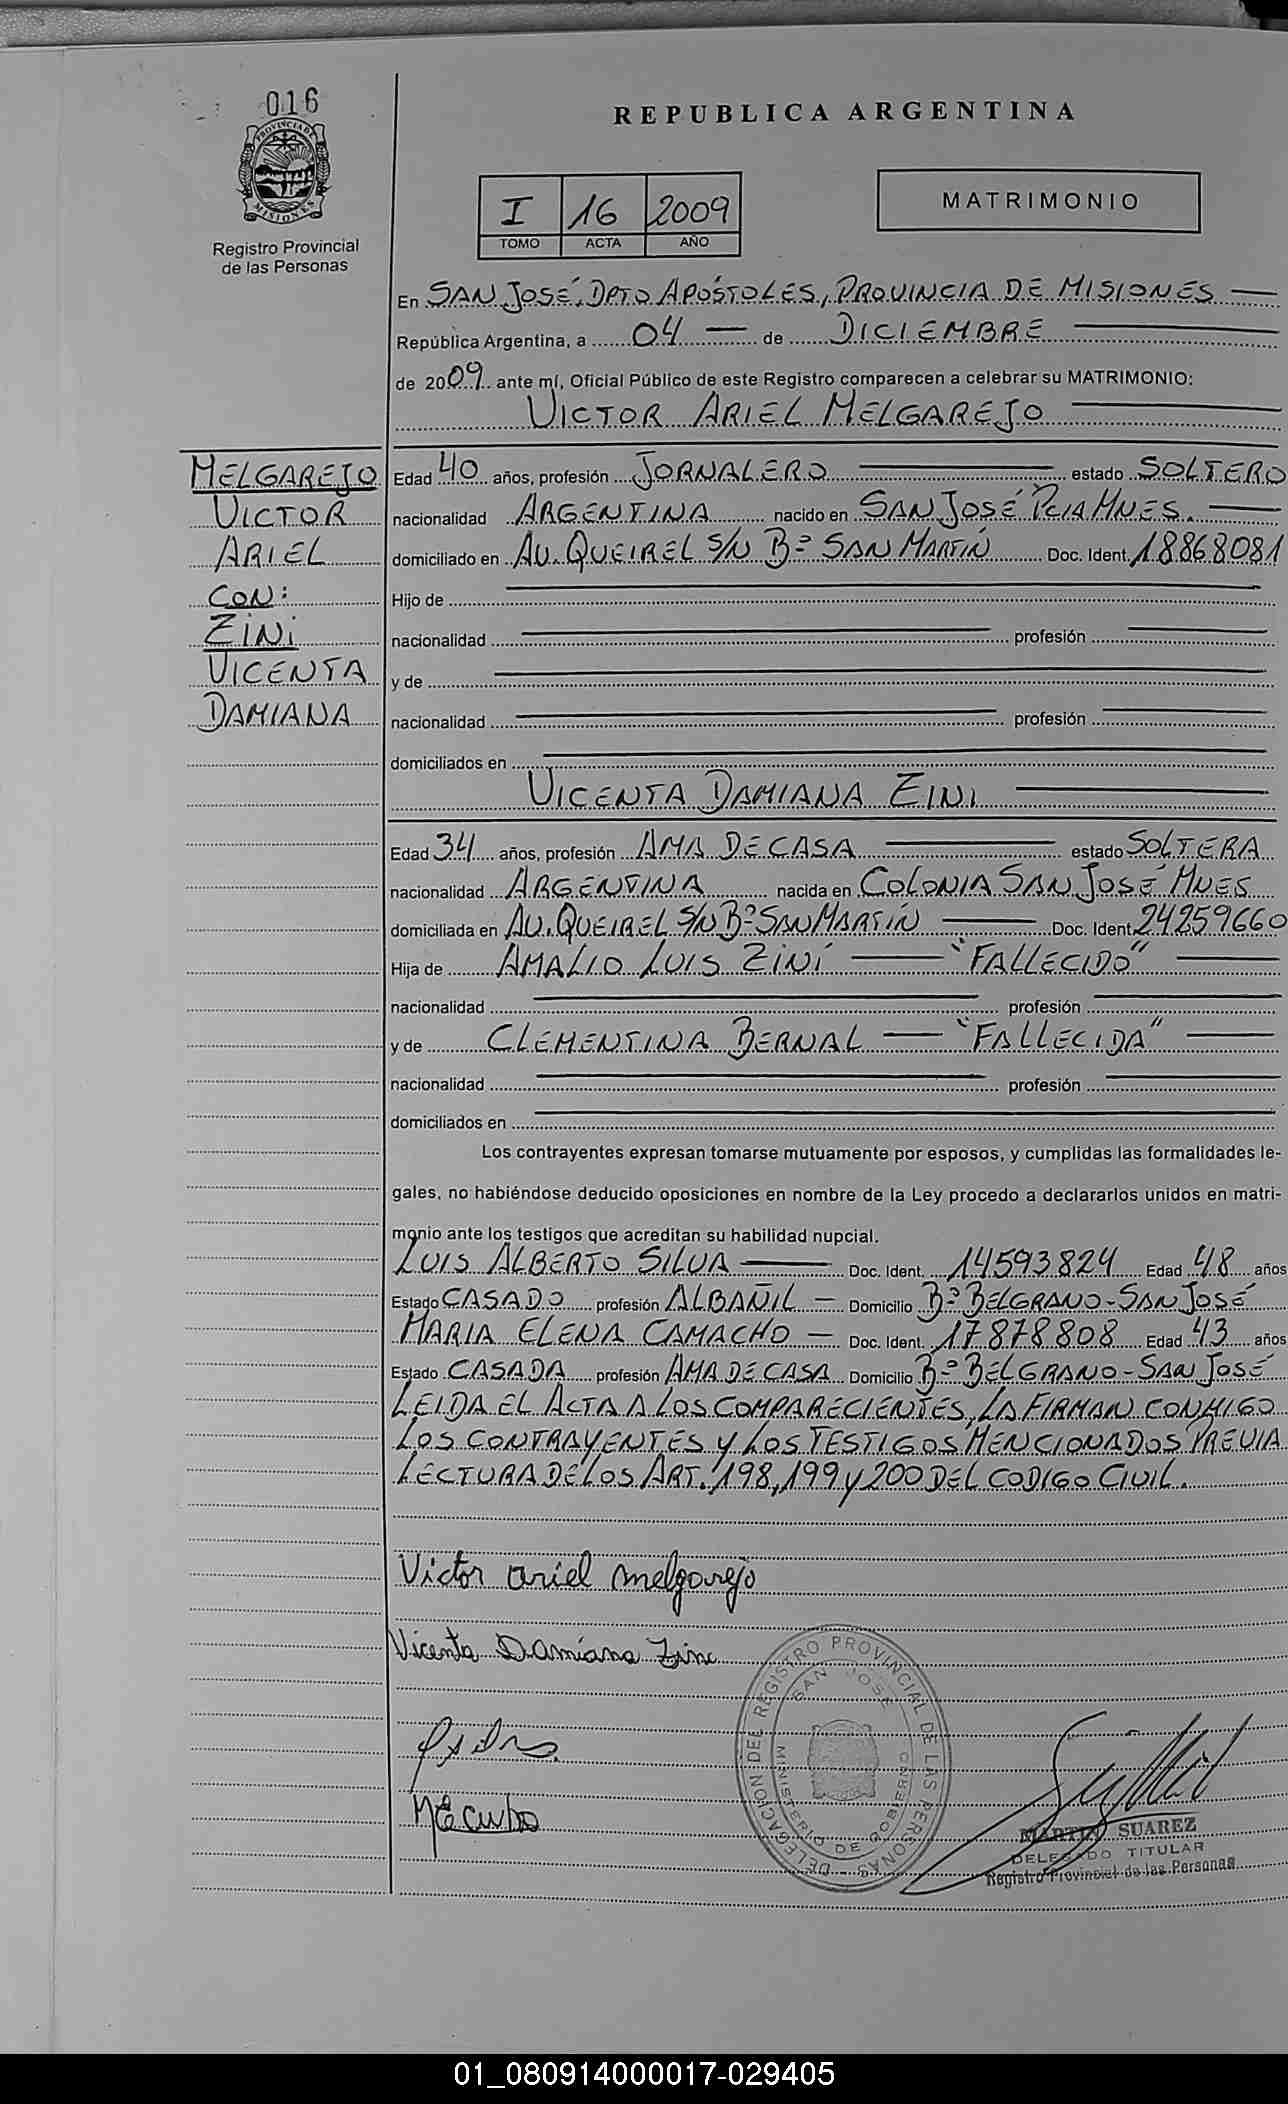 016
PROVINCIA DE
MISIONES
Registro Provincial
de las Personas
REPUBLICA ARGENTINA
I 16 2009
TOMO ACTA AÑO
MATRIMONIO
En SAN JOSÉ, DPTO APÓSTOLES, PROVINCIA DE MISIONES
República Argentina, a 04 de DICIEMBRE
de 2009 ante mí, Oficial Público de este Registro comparecen a celebrar su MATRIMONIO:
VICTOR ARIEL MELGAREJO
MELGAREJO
VICTOR
ARIEL
CON:
ZINI
VICENTA
DAMIANA
Edad 40 años, profesión JORNALERO estado SOLTERO
nacionalidad ARGENTINA nacido en SAN JOSÉ PCIA MNES.
domiciliado en AV. QUEIREL S/N Bº SAN MARTÍN Doc. Ident. 18868081
Hijo de
nacionalidad profesión
y de
nacionalidad profesión
domiciliados en
VICENTA DAMIANA ZINI
Edad 34 años, profesión AMA DE CASA estado SOLTERA
nacionalidad ARGENTINA nacida en COLONIA SAN JOSÉ MNES
domiciliada en AV. QUEIREL S/N Bº SAN MARTÍN Doc. Ident. 24259660
Hija de AMALIO LUIS ZINI "FALLECIDO"
nacionalidad profesión
y de CLEMENTINA BERNAL "FALLECIDA"
nacionalidad profesión
domiciliados en
Los contrayentes expresan tomarse mutuamente por esposos, y cumplidas las formalidades le-
gales, no habiéndose deducido oposiciones en nombre de la Ley procedo a declararlos unidos en matri-
monio ante los testigos que acreditan su habilidad nupcial.
LUIS ALBERTO SILVA Doc. Ident. 14593824 Edad 48 años
Estado CASADO profesión ALBAÑIL Domicilio Bº BELGRANO - SAN JOSÉ
MARIA ELENA CAMACHO Doc. Ident. 17878808 Edad 43 años
Estado CASADA profesión AMA DE CASA Domicilio Bº BELGRANO - SAN JOSÉ
LEIDA EL ACTA A LOS COMPARECIENTES, LA FIRMAN CONMIGO
LOS CONTRAYENTES Y LOS TESTIGOS MENCIONADOS PREVIA
LECTURA DE LOS ART. 198, 199 Y 200 DEL CODIGO CIVIL.
Victor ariel melgarejo
Vicenta Damiana Zini
DELEGACION DEL REGISTRO PROVINCIAL DE LAS PERSONAS
SAN JOSE
MINISTERIO DE GOBIERNO
MARTIN SUAREZ
DELEGADO TITULAR
Registro Provincial de las Personas
01_080914000017-029405